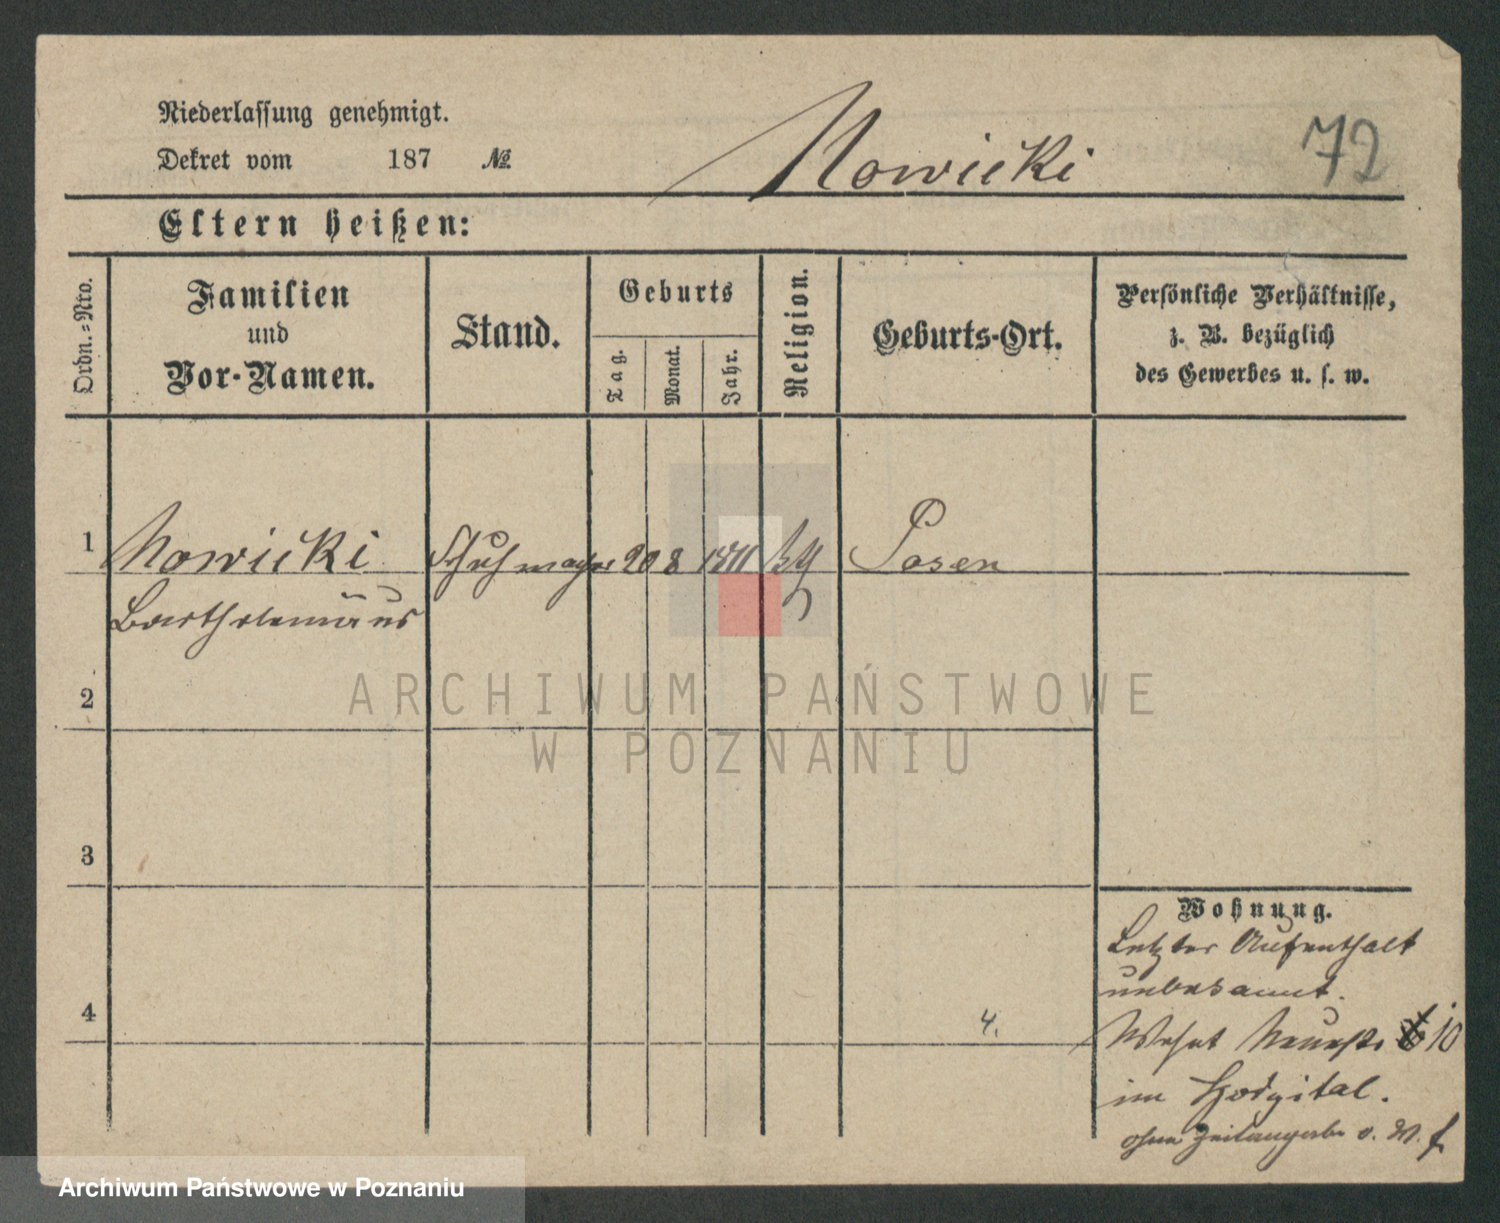 Niederlassung genehmigt.
Dekret vom 187 №
Nowicki
72
Eltern heißen:
Ordn.=Nro.
Familien
und
Vor-Namen.
Stand.
Geburts
Tag.
Monat.
Jahr.
Religion.
Geburts-Ort.
Persönliche Verhältnisse,
z. B. bezüglich
des Gewerbes u. s. w.
1 Nowicki Schuhmacher 20 8 1811 Posen
Bartholomäus
2
3
4
4.
Wohnung.
Letzter Aufenthalt
unbekannt.
Wohnt Neuestr. 10
im Hospital.
ohne Zeitangabe
ARCHIWUM PAŃSTWOWE
W POZNANIU
Archiwum Państwowe w Poznaniu